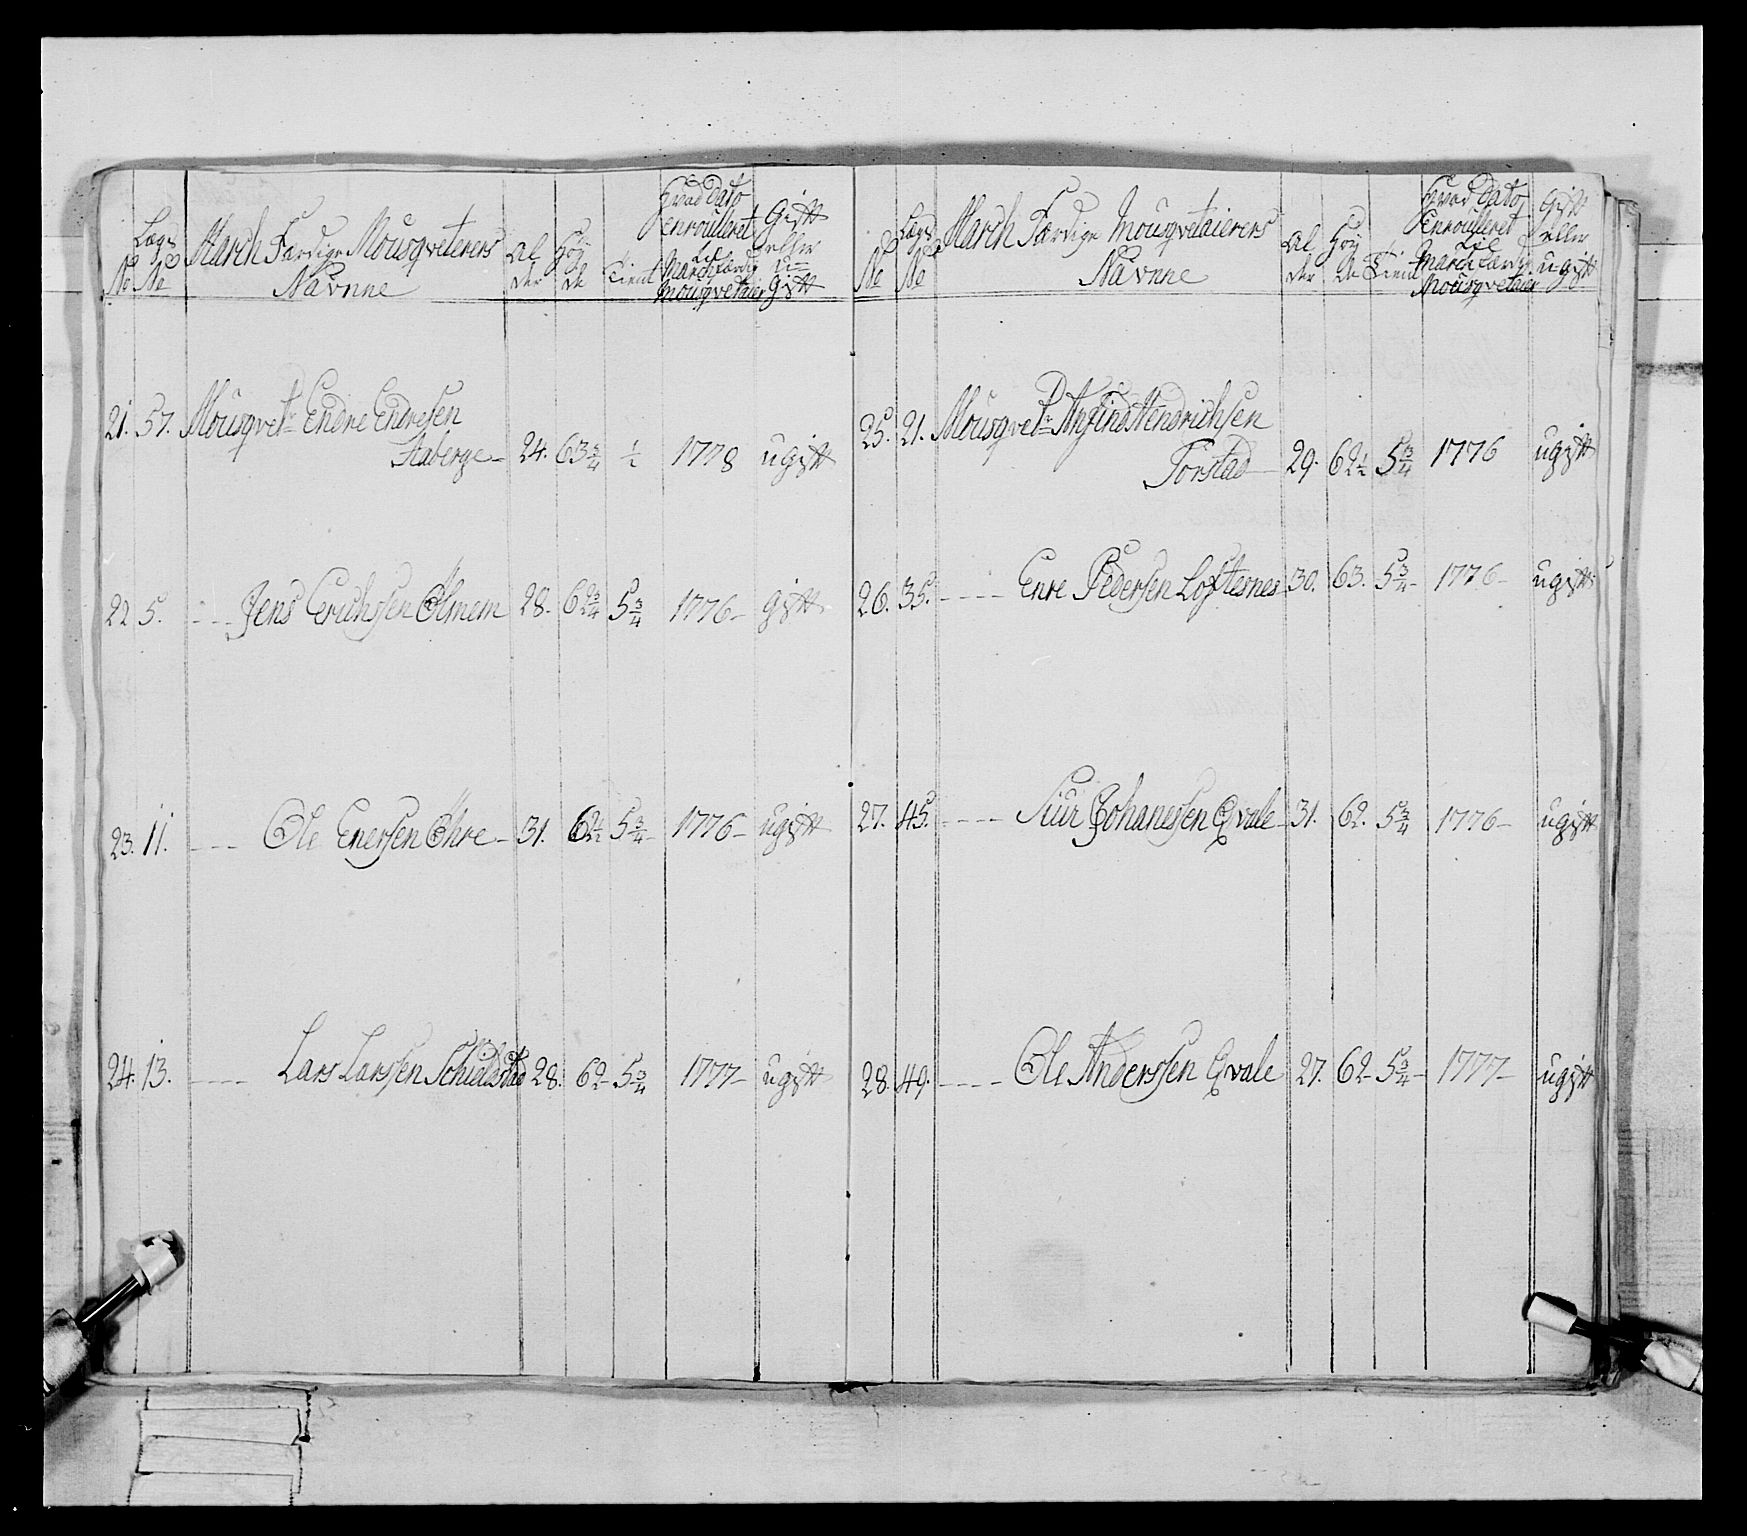 No
Lægs No
March Færdige Mousqveterers Navnne
Alder
Høyde
Tient
Hvad Dato enroulleret til March færdig Mousqvetaier
Gift eller u=gift
21. 57. Mousqvetr Endre Endresen
Staberge – 24. 63 3/4 1/2 1778 ugift
22 5. – – – Jens Erichssen Ölmem 28. 62 3/4 5 3/4 1776 – gift
23. 11. – – – Ole Enersen Öhre – 31. 62 1/2 5 3/4 – 1776 – ugift
24. 13. – – – Lars Larssen Schieldstad 28. 62 – 5 3/4 1777 – ugift
No
Lægs No
March Færdige Mousqvetaierers Navnne
Alder
Høyde
Tient
Hvad Dato Enroulleret til March Færdig Mousqvetaier
Gift eller u-gift
25. 21. Mousqvetr Anfind Hendrichsen
Torstad – 29. 62 1/2 5 3/4 1776 ugift
26. 35. – – – Enre Pedersen Loftesnes 30. 63. 5 3/4 – 1776 – ugift
27. 45. – – – Siur Johanessen Qvale – 31. 62. 5 3/4 1776 – ugift
28. 49. – – – Ole Anderssen Qvale 27. 62 – 5 3/4 – 1777 – ugift